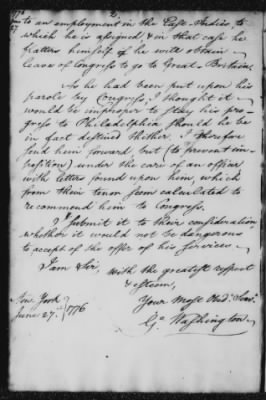 to an employment in the East Indies, to
which he is assigned & in that case he
flatters himself he will obtain
leave of Congress to go to Great Britain
As he had been put upon his
parole by Congress, I thought it
would be improper to stay his pro-
gress to Philadelphia should he be
in fact destined thither. I therefore
send him forward, but (to prevent im-
position) under the care of an officer
with letters found upon him, which
from their tenor seem calculated to
recommend him to Congress.
I submit it to their consideration
whether it would not be dangerous
to accept of the offer of his services
I am Sir, with the greatest respect
& esteem,
Your Most Obed. Serv.
Go. Washington
New York
June 27th 1776